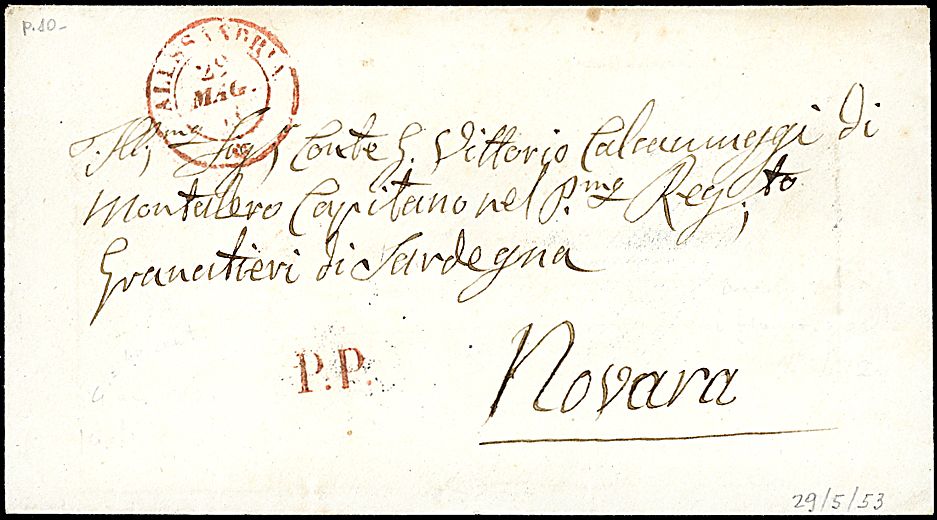 p.10-
ALESSANDRIA
29
MAG.
Ill.mo Sig.r Conte G. Vittorio Calcamuggi di
Montalero Capitano nel P.mo Reg.to
Granatieri di Sardegna
P.P.
Novara
29/5/53